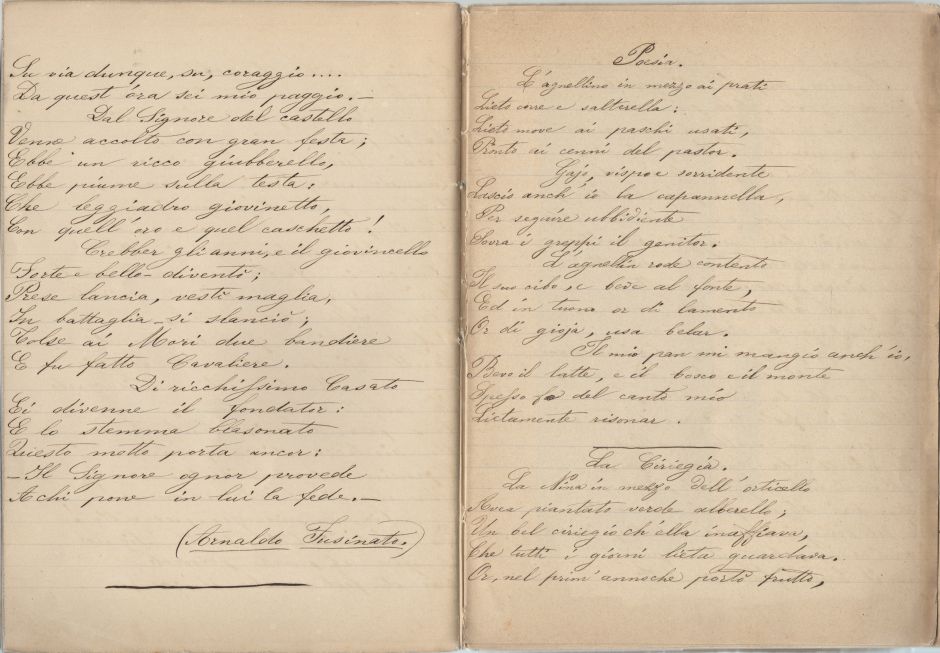 Su via dunque, su, coraggio....
Da quest'ora sei mio paggio.—
Dal Signore del castello
Venne accolto con gran festa;
Ebbe un ricco giubberello,
Ebbe piume sulla testa:
Che leggiadro giovinetto,
Con quell'oro e quel caschetto!
Crebber gli anni, e il giovincello
Forte e bello diventò;
Prese lancia, vestì maglia,
In battaglia si slanciò;
Tolse ai Mori due bandiere
E fu fatto Cavaliere.
Di ricchissimo Casato
Ei divenne il fondator:
E lo stemma blasonato
Questo motto porta ancor:
—Il Signore ognor provede
A chi pone in lui la fede.—
(Arnaldo Fusinato.)
Poesia.
L'agnellino in mezzo ai prati
Lieto corre e salterella:
Lieto move ai paschi usati,
Pronto ai cenni del pastor.
Gajo, vispo e sorridente
Lascio anch'io la capannella,
Per seguire ubbidiente
Sovra i greppi il genitor.
L'agnellin rode contento
Il suo cibo, e beve al fonte,
Ed in tuono or di lamento
Or di gioja, usa belar.
Il mio pan mi mangio anch'io,
Bevo il latte, e il bosco e il monte
Spesso fo del canto mio
Lietamente risonar.
La Ciriegia.
La Nina in mezzo dell'orticello
Avea piantato verde alberello;
Un bel ciriegio ch'ella inaffiava,
Che tutti i giorni lieta guardava.
Or, nel prim'anno che portò frutto,